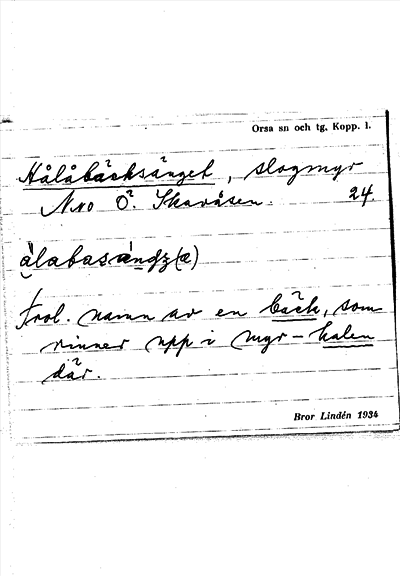 Orsa sn och tg. Kopp. l.
Hålåbäcksänget, slogmyr
N.no Ö. Skaråsen. 24.
àlabasàndz(æ)
Trol. namn av en bäck, som
rinner upp i myr-halen
där.
Bror Lindén 1934